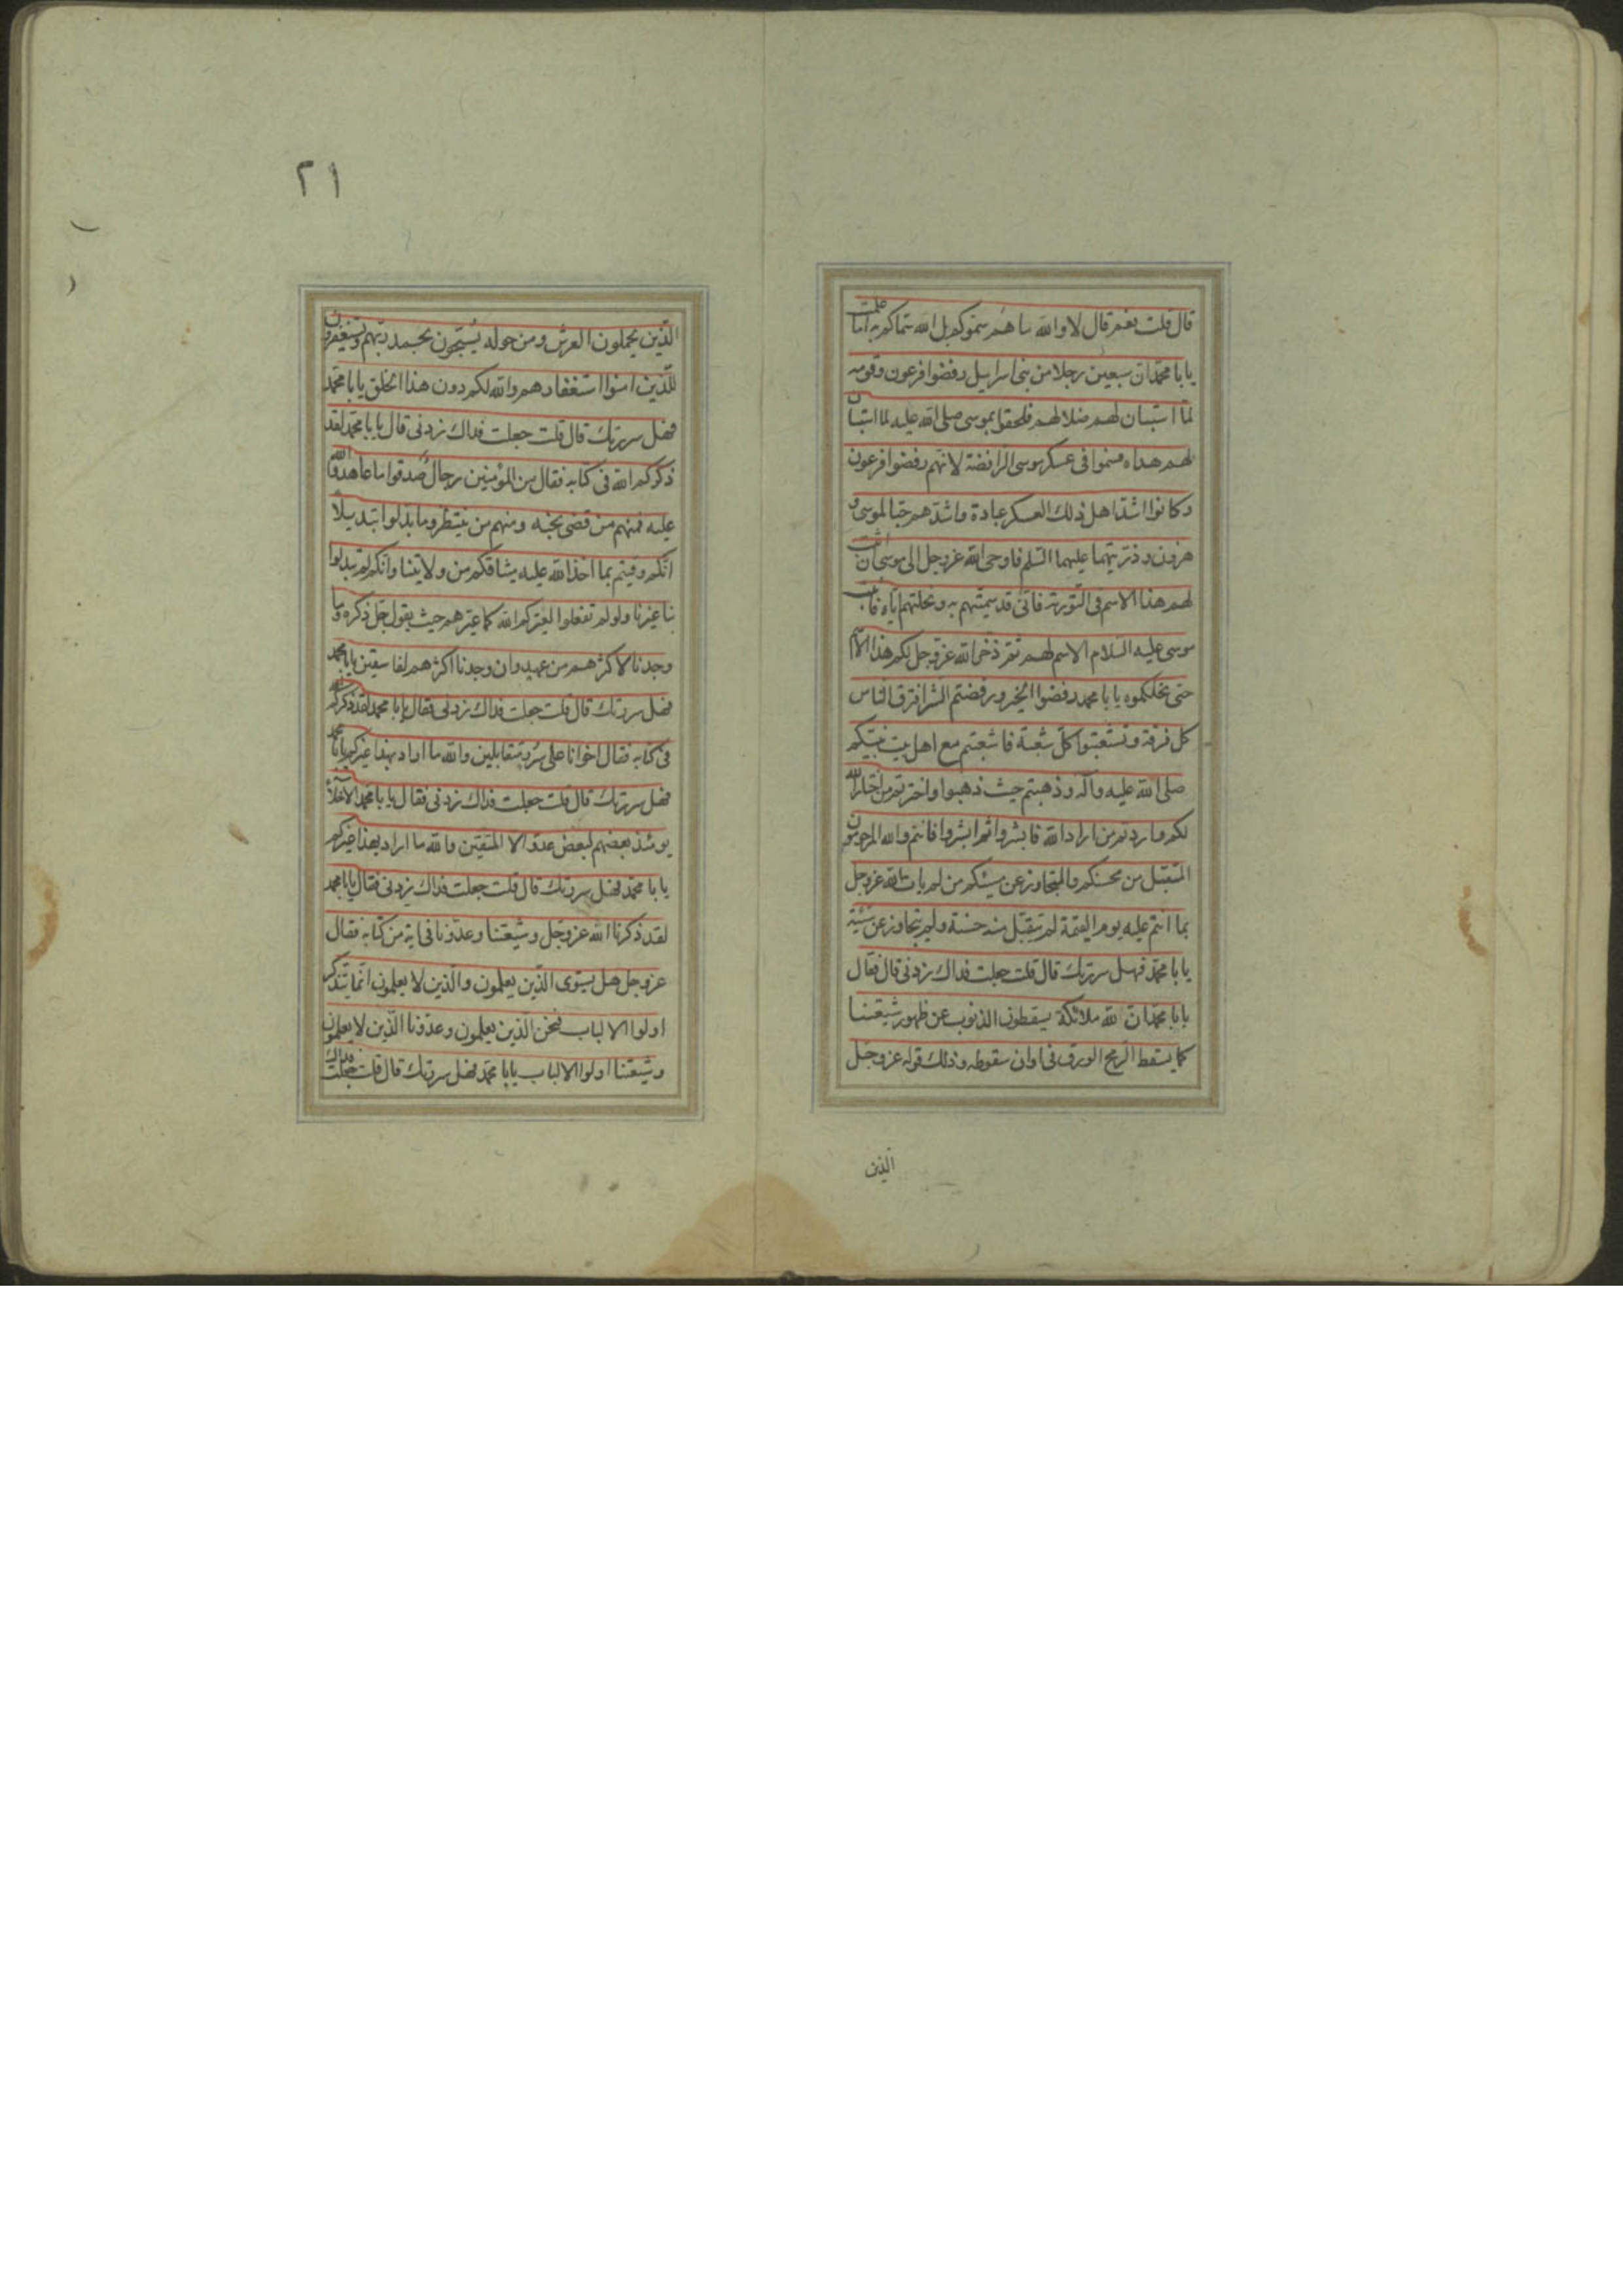 قال قلت نعم قال لا والله ما هم سموكم بل الله سماكم به اما علمت
يابا محمد ان سبعين رجلا من بنى اسرايل رفضوا فرعون وقومه
لما استبان لهم ضلالهم فلحقوا بموسى صلى الله عليه لما استبان
لهم هداه فسموا فى عسكر موسى الرافضة لانهم رفضوا فرعون
وكانوا اشد اهل ذلك العسكر عبادة واشدهم حبا لموسى و
هرون وذريتهما عليهما السلم فاوحى الله عز وجل الى موسى ان اثبت
لهم هذا الاسم فى التورية فانى قد سميتهم به ونحلتهم اياه فاثبت
موسى عليه السلام الاسم لهم ثم ذخر الله عز وجل لكم هذا الاسم
حتى نحلكموه يابا محمد رفضوا الخير ورفضتم الشر افترق الناس
كل فرقة وتشعبوا كل شعبة فانشعبتم مع اهل بيت نبيكم
صلى الله عليه وآله وذهبتم حيث ذهبوا واخترتم من اختار الله
لكم واردتم من اراد الله فابشروا ثم ابشروا فانتم والله المرحومون
المتقبل من محسنكم والمتجاوز عن مسيئكم من لم يات الله عز وجل
بما انتم عليه يوم القيمة لم يتقبل منه حسنة ولم يتجاوز عن سيئة
يابا محمد فهل سررتك قال قلت جعلت فداك زدنى قال فقال
يابا محمد ان لله ملائكة يسقطون الذنوب عن ظهور شيعتنا
كما يسقط الريح الورق فى اوان سقوطه وذلك قوله عز وجل
الذين
٢١
الذين يحملون العرش ومن حوله يسبحون بحمد ربهم ويستغفرون
للذين امنوا استغفارهم والله لكم دون هذا الخلق يابا محمد
فهل سررتك قال قلت جعلت فداك زدنى قال يابا محمد لقد
ذكركم الله فى كتابه فقال من المؤمنين رجال صدقوا ما عاهدوا الله
عليه فمنهم من قضى نحبه ومنهم من ينتظر وما بدلوا تبديلا
انكم وفيتم بما اخذ الله عليه ميثاقكم من ولايتنا وانكم لم تبدلوا
بنا غيرنا ولو لم تفعلوا لعيركم الله كما عيرهم حيث يقول جل ذكره وما
وجدنا لاكثرهم من عهد وان وجدنا اكثرهم لفاسقين يابا محمد
فهل سررتك قال قلت جعلت فداك زدنى فقال يابا محمد لقد ذكركم الله
فى كتابه فقال اخوانا على سرر متقابلين والله ما اراد بهذا غيركم يابا محمد
فهل سررتك قال قلت جعلت فداك زدنى فقال يابا محمد الاخلاء
يومئذ بعضهم لبعض عدو الا المتقين والله ما اراد بهذا غيركم
يابا محمد فهل سررتك قال قلت جعلت فداك زدنى فقال يابا محمد
لقد ذكرنا الله عز وجل وشيعتنا وعدونا فى اية من كتابه فقال
عز وجل هل يستوى الذين يعلمون والذين لا يعلمون انما يتذكر
اولوا الالباب فنحن الذين يعلمون وعدونا الذين لا يعلمون
وشيعتنا اولوا الالباب يابا محمد فهل سررتك قال قلت جعلت فداك